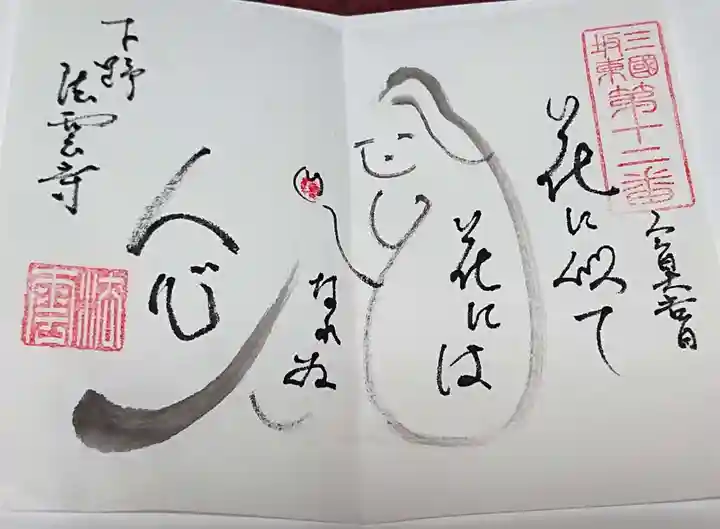 三國坂東
第十二番
花に似て
花には
なれぬ
人心
下野
法雲寺
法雲